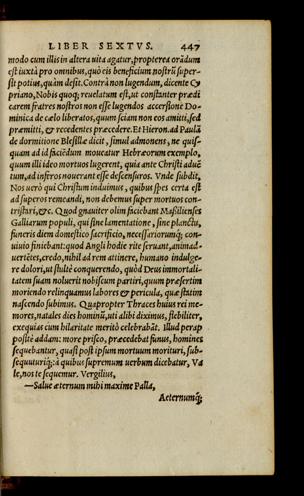 LIBER SEXTVS. 447
modo cum illis in altera uita agatur, propterea orādum
est iuxtà pro omnibus, quò eis beneficium nostrū super-
sit potius, quàm desit. Contrà non lugendum, dicente Cy
priano, Nobis quoq; reuelatum est, ut constanter prædi
carem fratres nostros non esse lugendos accersione Do-
minica de cælo liberatos, quum sciam non eos amitti, sed
præmitti, & recedentes præcedere. Et Hieron. ad Paulā
de dormitione Blesillæ dicit, simul admonens, ne quis-
quam ad id faciēdum moueatur Hebræorum exemplo,
quum illi ideo mortuos lugerent, quia ante Christi aduē
tum, ad inferos nouerant esse descensuros. Vnde subdit,
Nos uerò qui Christum induimus, quibus spes certa est
ad superos remeandi, non debemus super mortuos con-
tristari, &c. Quod gnauiter olim faciebant Maßilienses
Galliarum populi, qui sine lamentatione, sine planctu,
funeris diem domestico sacrificio, neceßariorumq; con-
uiuio finiebant: quod Angli hodie rite seruant, animad-
uertētes, credo, nihil ad rem attinere, humano indulge-
re dolori, ut stultè conquerendo, quòd Deus immortali-
tatem suam noluerit nobiscum partiri, quum præsertim
moriendo relinquamus labores & pericula, quæ statim
nascendo subimus. Quapropter Thraces huius rei me-
mores, natales dies hominū, uti alibi diximus, flebiliter,
exequias cum hilaritate meritò celebrabāt. Illud perap
positè addam: more prisco, præcedebat funus, homines
sequebantur, quasi post ipsum mortuum morituri, sub-
sequuturiq;: à quibus supremum uerbum dicebatur, Va
le, nos te sequemur. Vergilius,
—Salue æternum mihi maxime Palla,
Aeternumq;